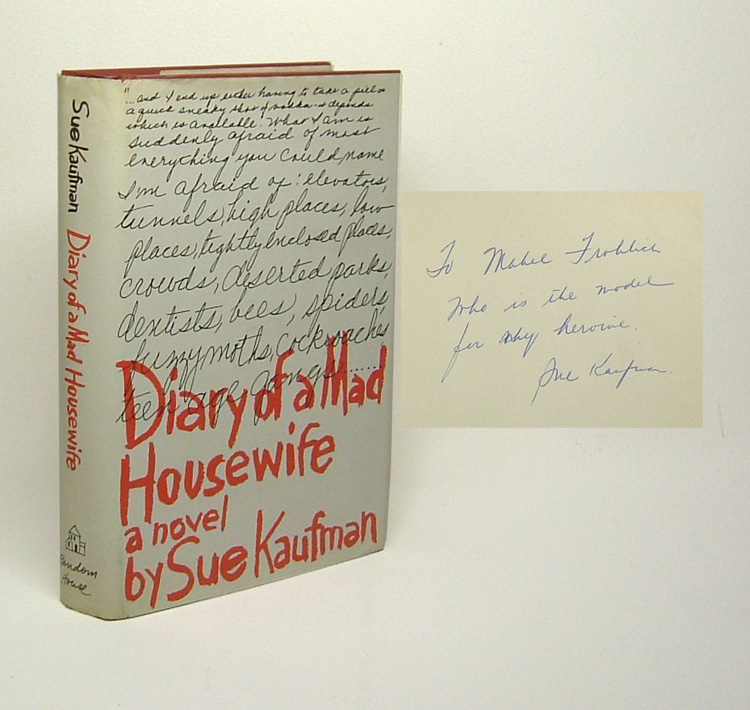 Sue Kaufman Diary of a Mad Housewife
Random
House
"...and I end up either having to take a pill or
a quick sneaky shot of vodka - it depends
which is available. What I am is
suddenly afraid of most
everything you could name
I'm afraid of: elevators,
tunnels, high places, low
places, tightly enclosed places,
crowds, deserted parks,
dentists, bees, spiders,
furry moths, cockroaches,
teen-age gangs......
Diary of a Mad
Housewife
a novel
by Sue Kaufman
To Mabel Frohlich
Who is the model
for my heroine.
Sue Kaufman